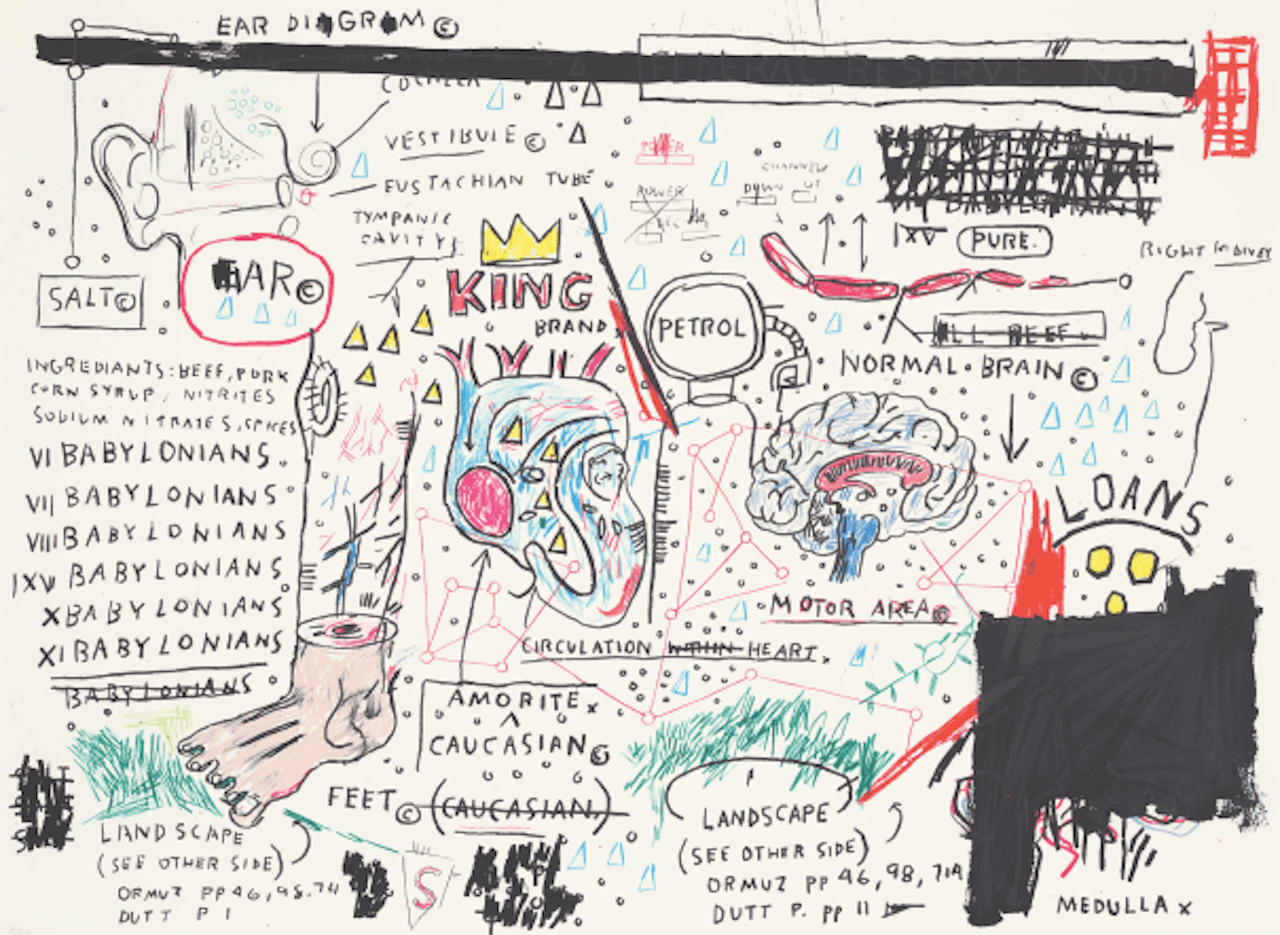 EAR DIAGRAM ©
FEDERAL RESERVE NOTE
COCHLEA
VESTIBULE ©
EUSTACHIAN TUBE
TYMPANIC
CAVITY
POWER
CHANNEL
DOWN UP
POWER
REC
BABYLONIAN
IXV PURE.
RIGHT KIDNEY
SALT ©
EAR ©
KING
BRAND
PETROL
ALL BEEF
NORMAL BRAIN ©
INGREDIANTS: BEEF, PORK
CORN SYRUP, NITRITES
SODIUM NITRATES, SPICES
VI BABYLONIANS
VII BABYLONIANS
VIII BABYLONIANS
IXV BABYLONIANS
X BABYLONIANS
XI BABYLONIANS
BABYLONIANS
LOANS
MOTOR AREA ©
CIRCULATION WITHIN HEART
AMORITE x
^
CAUCASIAN ©
FEET © (CAUCASIAN.)
LANDSCAPE
(SEE OTHER SIDE)
ORMUZ PP 46, 98. 74
DUTT P 1
S
LANDSCAPE
(SEE OTHER SIDE)
ORMUZ PP 46, 98, 714
DUTT P. PP 11
MEDULLA x